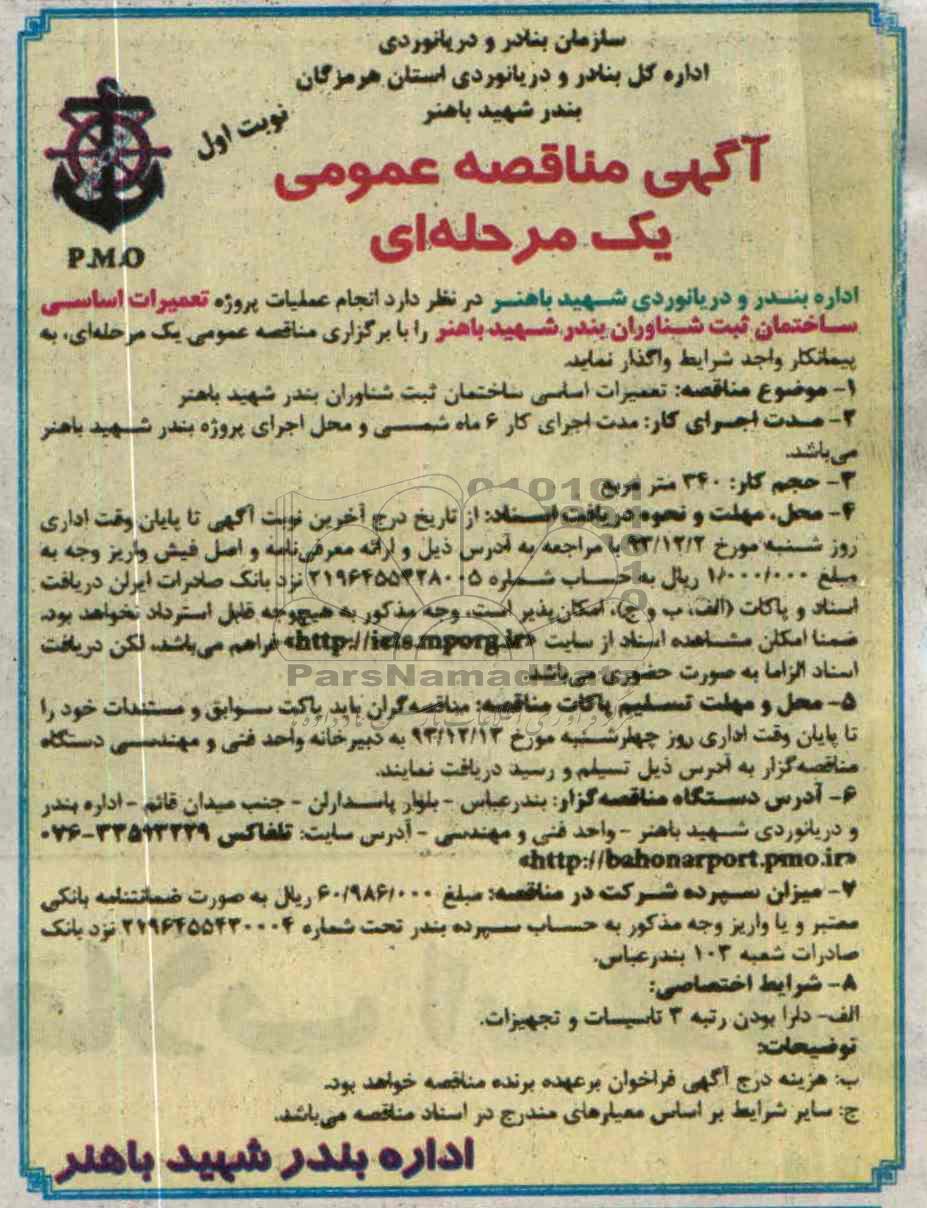 سازمان بنادر و دریانوردی
اداره کل بنادر و دریانوردی استان هرمزگان
بندر شهید باهنر
نوبت اول
آگهی مناقصه عمومی
یک مرحله‌ای
P.M.O
اداره بندر و دریانوردی شهید باهنر در نظر دارد انجام عملیات پروژه تعمیرات اساسی
ساختمان ثبت شناوران بندر شهید باهنر را با برگزاری مناقصه عمومی یک مرحله‌ای، به
پیمانکار واجد شرایط واگذار نماید.
۱- موضوع مناقصه: تعمیرات اساسی ساختمان ثبت شناوران بندر شهید باهنر
۲- مدت اجرای کار: مدت اجرای کار ۶ ماه شمسی و محل اجرای پروژه بندر شهید باهنر
می‌باشد.
۳- حجم کار: ۳۴۰ متر مربع
۴- محل، مهلت و نحوه دریافت اسناد: از تاریخ درج آخرین نوبت آگهی تا پایان وقت اداری
روز شنبه مورخ ۹۳/۱۲/۲ با مراجعه به آدرس ذیل و ارائه معرفی‌نامه و اصل فیش واریز وجه به
مبلغ ۱/۰۰۰/۰۰۰ ریال به حساب شماره ۲۱۹۶۴۵۵۴۲۸۰۰۵ نزد بانک صادرات ایران دریافت
اسناد و پاکات (الف، ب و ج)، امکان‌پذیر است. وجه مذکور به هیچ‌وجه قابل استرداد نخواهد بود.
ضمنا امکان مشاهده اسناد از سایت «http://iets.mporg.ir» فراهم می‌باشد، لکن دریافت
اسناد الزاما به صورت حضوری می‌باشد.
ParsNamadData
۵- محل و مهلت تسلیم پاکات مناقصه: مناقصه‌گران باید پاکت سوابق و مستندات خود را
تا پایان وقت اداری روز چهارشنبه مورخ ۹۳/۱۲/۱۳ به دبیرخانه واحد فنی و مهندسی دستگاه
مناقصه‌گزار به آدرس ذیل تسیلم و رسید دریافت نمایند.
۶- آدرس دستگاه مناقصه‌گزار: بندرعباس - بلوار پاسداران - جنب میدان قائم - اداره بندر
و دریانوردی شهید باهنر - واحد فنی و مهندسی - آدرس سایت: تلفاکس ۳۳۵۱۳۲۲۹-۰۷۶
«http://bahonarport.pmo.ir»
۷- میزان سپرده شرکت در مناقصه: مبلغ ۶۰/۹۸۶/۰۰۰ ریال به صورت ضمانتنامه بانکی
معتبر و یا واریز وجه مذکور به حساب سپرده بندر تحت شماره ۲۱۹۶۴۵۵۴۳۰۰۰۴ نزد بانک
صادرات شعبه ۱۰۳ بندرعباس.
۸- شرایط اختصاصی:
الف- دارا بودن رتبه ۳ تاسیسات و تجهیزات.
توضیحات:
ب: هزینه درج آگهی فراخوان برعهده برنده مناقصه خواهد بود.
ج: سایر شرایط بر اساس معیارهای مندرج در اسناد مناقصه می‌باشد.
اداره بندر شهید باهنر